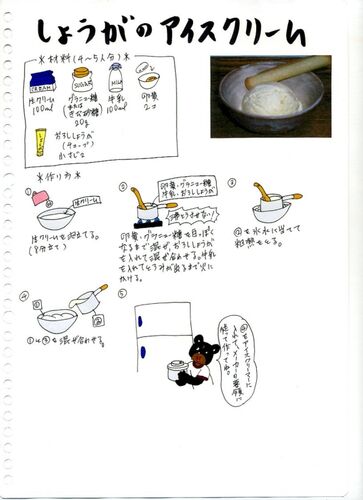 しょうがのアイスクリーム
＊材料(4〜5人分)＊
CREAM
SUGAR
MILK
生クリーム
100ml
グラニュー糖
または
きび砂糖
20g
牛乳
100ml
卵黄
2コ
おろししょうが
(チューブ)
小さじ2
＊作り方＊
①
生クリーム
生クリームを泡立てる。
(8分立て)
②
卵黄・グラニュー糖
牛乳・おろししょうが
沸とうさせない!
卵黄・グラニュー糖を白っぽく
なるまで混ぜ、おろししょうが
を入れて混ぜ合わせる。牛乳
を入れてとろみが出るまで火に
かける。
③
②を氷水に当てて
粗熱をとる。
④
①
③
①と③を混ぜ合わせる。
⑤
④をアイスクリーマーに
入れてメーカーの要領に
従って作ってね。